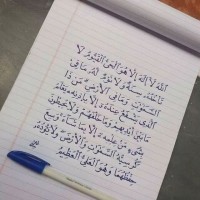 اللَّهُ لَا إِلَٰهَ إِلَّا هُوَ الْحَيُّ الْقَيُّومُ لَا
تَأْخُذُهُ سِنَةٌ وَلَا نَوْمٌ لَهُ مَا فِي
السَّمَٰوَٰتِ وَمَا فِي الْأَرْضِ مَنْ ذَا
الَّذِي يَشْفَعُ عِنْدَهُ إِلَّا بِإِذْنِهِ يَعْلَمُ
مَا بَيْنَ أَيْدِيهِمْ وَمَا خَلْفَهُمْ وَلَا يُحِيطُونَ
بِشَيْءٍ مِنْ عِلْمِهِ إِلَّا بِمَا شَاءَ وَسِعَ
كُرْسِيُّهُ السَّمَٰوَٰتِ وَالْأَرْضَ وَلَا يَئُودُهُ
حِفْظُهُمَا وَهُوَ الْعَلِيُّ الْعَظِيمُ